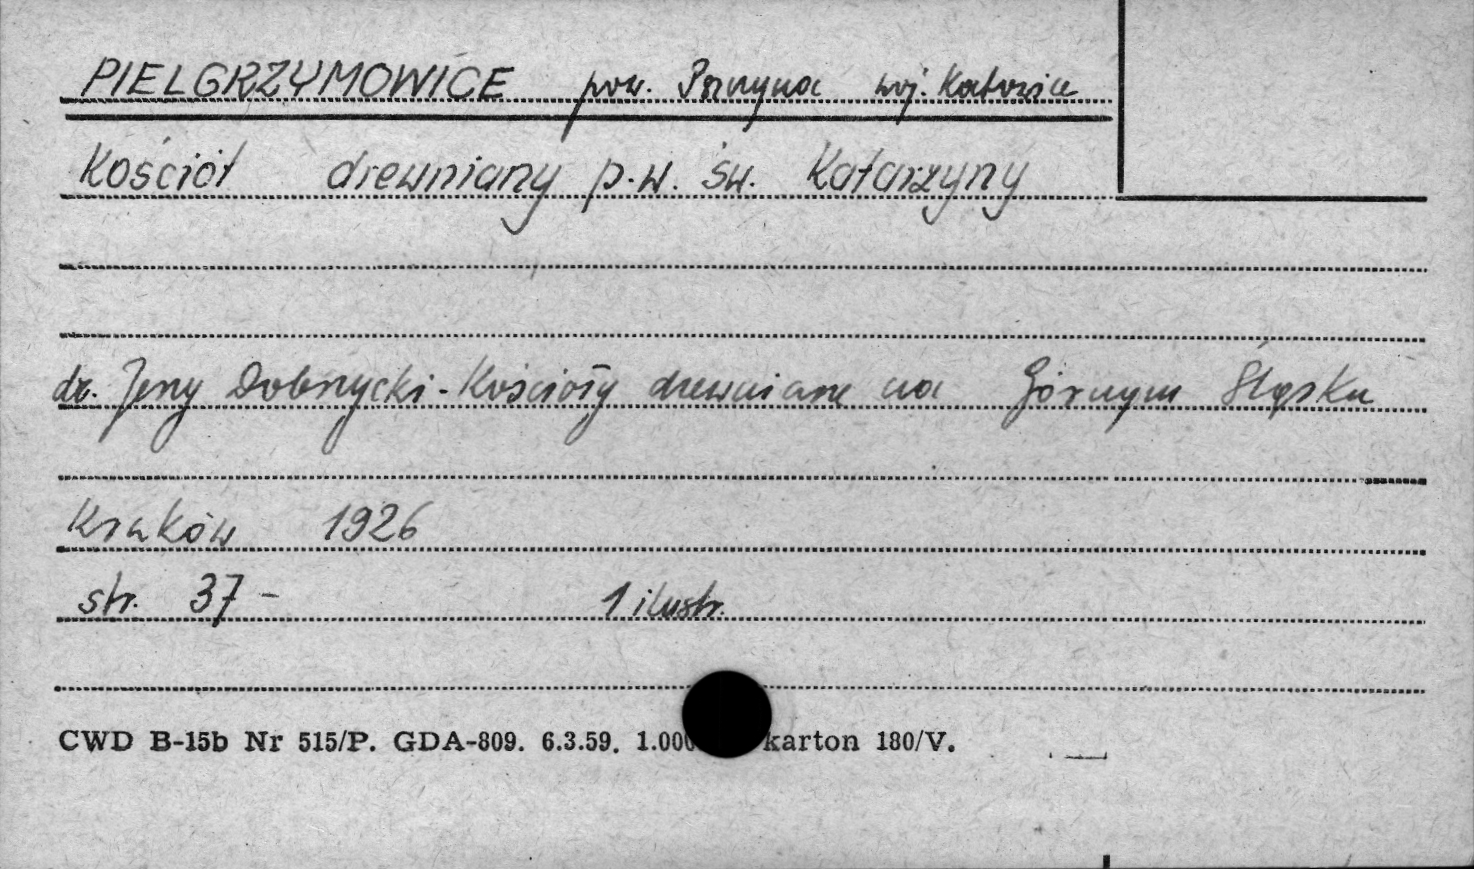 PIELGRZYMOWICE pow. Pszczyna woj. Katowice
Kościół drewniany p.w. św. Katarzyny
dr. Jerzy Dobrzycki - Kościoły drewniane na Górnym Śląsku
Kraków 1926
str. 37 - 1 ilustr.
CWD B-15b Nr 515/P. GDA-809. 6.3.59. 1.000 karton 180/V.